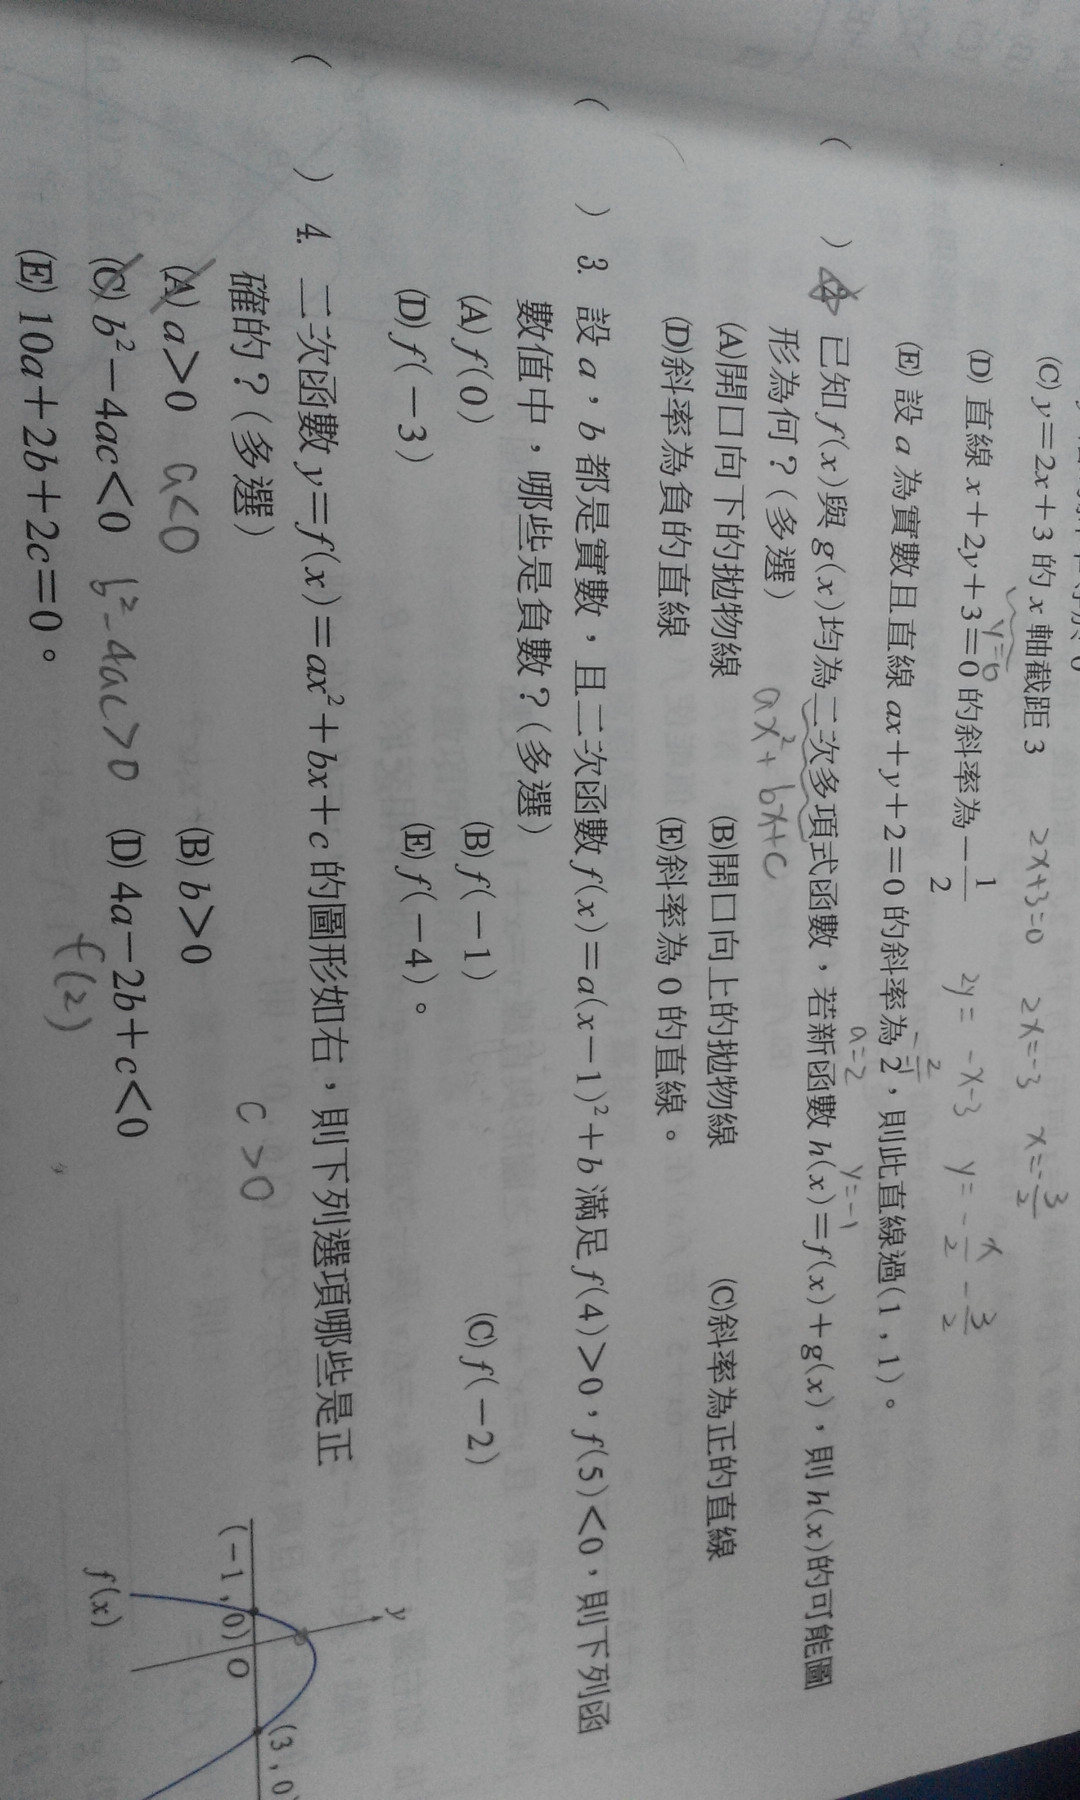 (C) y=2x+3 的 x 軸截距 3 2x+3=0 2x=-3 x=-3/2
y=0
(D) 直線 x+2y+3=0 的斜率為 -1/2 2y=-x-3 y=-x/2-3/2
(E) 設 a 為實數且直線 ax+y+2=0 的斜率為 2,則此直線過(1,1)。
a=-2 y=-1
( ) 2. 已知 f(x)與 g(x)均為二次多項式函數,若新函數 h(x)=f(x)+g(x),則 h(x)的可能圖
形為何?(多選) ax²+bx+c
(A)開口向下的拋物線 (B)開口向上的拋物線 (C)斜率為正的直線
(D)斜率為負的直線 (E)斜率為 0 的直線。
( ) 3. 設 a,b 都是實數,且二次函數 f(x)=a(x-1)²+b 滿足 f(4)>0,f(5)<0,則下列函
數值中,哪些是負數?(多選)
(A) f(0) (B) f(-1) (C) f(-2)
(D) f(-3) (E) f(-4)。
( ) 4. 二次函數 y=f(x)=ax²+bx+c 的圖形如右,則下列選項哪些是正
確的?(多選) c>0
(A) a>0 a<0 (B) b>0
(C) b²-4ac<0 b²-4ac>0 (D) 4a-2b+c<0
f(2)
(E) 10a+2b+2c=0。
y
(-1,0)
O
(3,0)
f(x)